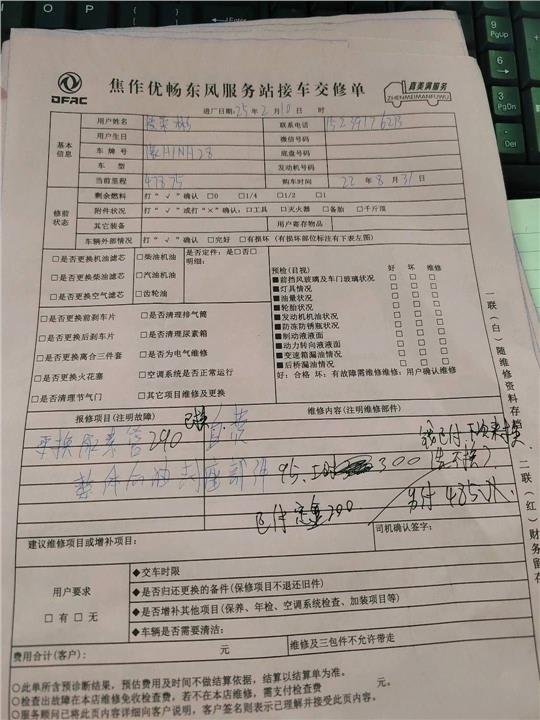 DFAC
焦作优畅东风服务站接车交修单
真美满服务
ZHENMEIMANFUWU
进厂日期:25年2月10日 时
基本信息
用户姓名 联系电话
用户生日 微信号码
车牌号 豫HA1NA28 底盘号码
车型 发动机号码
当前里程 47875 购车时间 22年8月31日
修前状态
剩余燃料 打“√”确认 □0 □1/4 □1/2 □1
附件状况 打“√”或打“×”确认:□工具 □灭火器 □备胎 □千斤顶
其它装备 用户寄存物品
车辆外部情况 打“√”确认 □完好 □有损坏 (有损坏部位标注有下表左图)
□是否更换机油滤芯 □柴油机油 是否定件:是□否□
明细:
□是否更换柴油滤芯 □汽油机油
□是否更换空气滤芯 □齿轮油
□是否更换前刹车片 □是否清理排气筒
□是否更换后刹车片 □是否清理尿素箱
□是否更换离合三件套 □是否为电气维修
□是否更换火花塞 □空调系统是否正常运行
□是否清理节气门 □其它项目维修及更换
预检(目视) 好 坏 维修
■前挡风玻璃及车门玻璃状况 □ □ □
■灯具情况 □ □ □
■油量状况 □ □ □
■轮胎状况 □ □ □
■发动机机油状况 □ □ □
■防冻防锈瓶状况 □ □ □
■制动液液面 □ □ □
■动力转向液液面 □ □ □
■变速箱漏油情况 □ □ □
■后桥漏油情况 □ □ □
好:合格 坏:有故障需维修维修:用户确认维修
报修项目(注明故障) 维修内容(注明维修部件)
已换
更换尿素管290 自费
整体后油封座部件 95.工时 300
已付定金200 另付485
建议维修项目或增补项目: 司机确认签字:
用户要求
□有□无
◆交车时限
◆是否归还更换的备件(保修项目不退还旧件)
◆是否增补其他项目(保养、年检、空调系统检查、加装项目等)
◆车辆是否需要清洁:
费用合计(客户): 元 维修及三包件不允许带走
○此单所含预诊断结果,预估费用及时间不做结算依据,结算以结算单为准。
○检查出故障在本店维修免收检查费,若不在本店维修,需支付检查费 元。
○服务顾问已将此页内容详细向客户说明,客户签名则表示已理解并接受此页内容。
一联(白)随维修资料存档 二联(红)财务留存